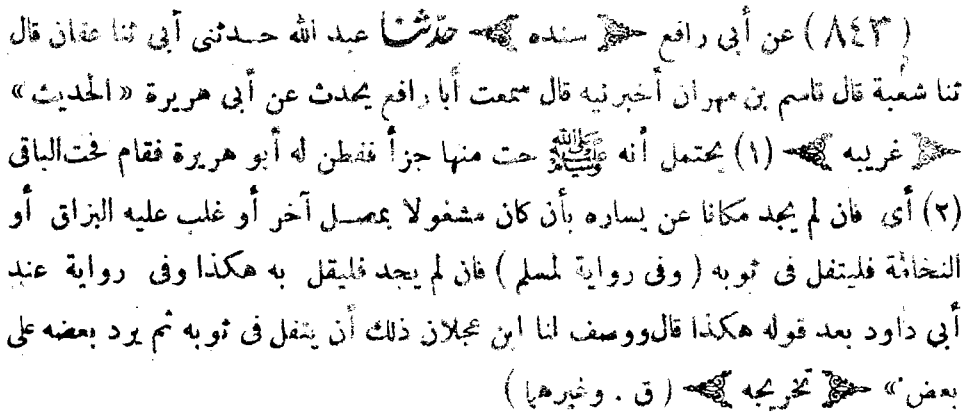 ( ٨٤٣ ) عن أبى رافع ﴿ سنده ﴾ حدثنا عبد الله حدثنى أبى ثنا عفان قال
ثنا شعبة قال قاسم بن مهران أخبرنيه قال سمعت أبا رافع يحدث عن أبى هريرة « الحديث »
﴿ غريبه ﴾ (١) يحتمل أنه ﷺ حت منها جزأ ففطن له أبو هريرة فقام فحت الباقى
(٢) أى فان لم يجد مكانا عن يساره بأن كان مشغولا بمصل آخر أو غلب عليه البزاق أو
النخامة فليتفل فى ثوبه ( وفى رواية لمسلم ) فان لم يجد فليقل به هكذا وفى رواية عند
أبى داود بعد قوله هكذا قال ووصف لنا ابن عجلان ذلك أن يتفل فى ثوبه ثم يرد بعضه على
بعض » ﴿ تخريجه ﴾ ( ق . وغيرهما )